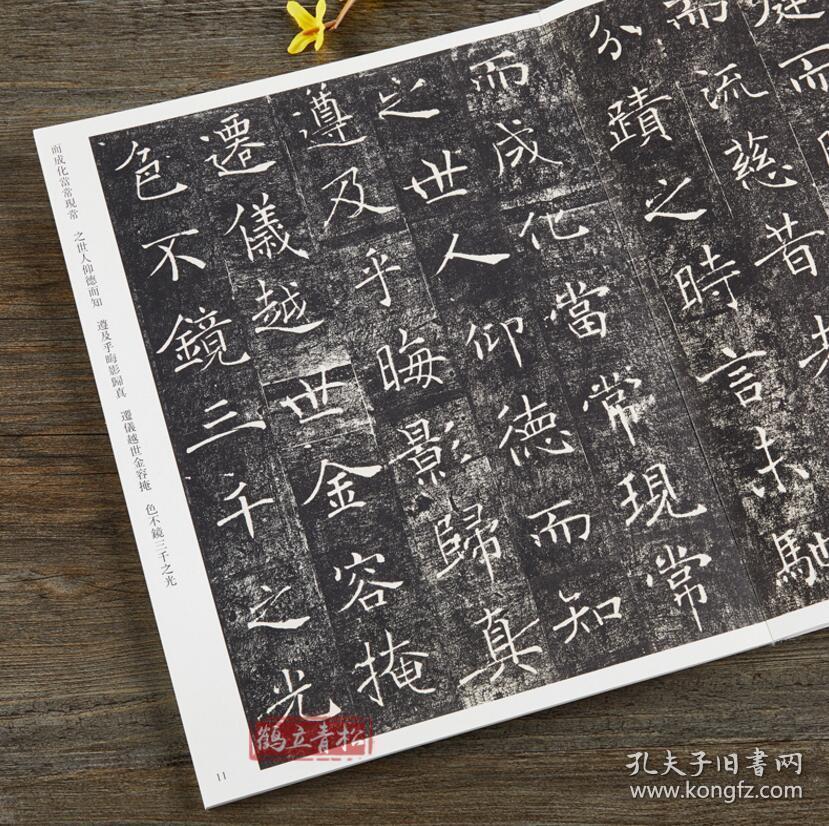 庭而
而流慈昔者
分蹟之時言未馳
而成化當常現常
之世人仰德而知
遵及乎晦影歸真
遷儀越世金容掩
色不鏡三千之光
而成化當常現常 之世人仰德而知 遵及乎晦影歸真 遷儀越世金容掩 色不鏡三千之光
11
鹤立青松
孔夫子旧书网
www.kongfz.com